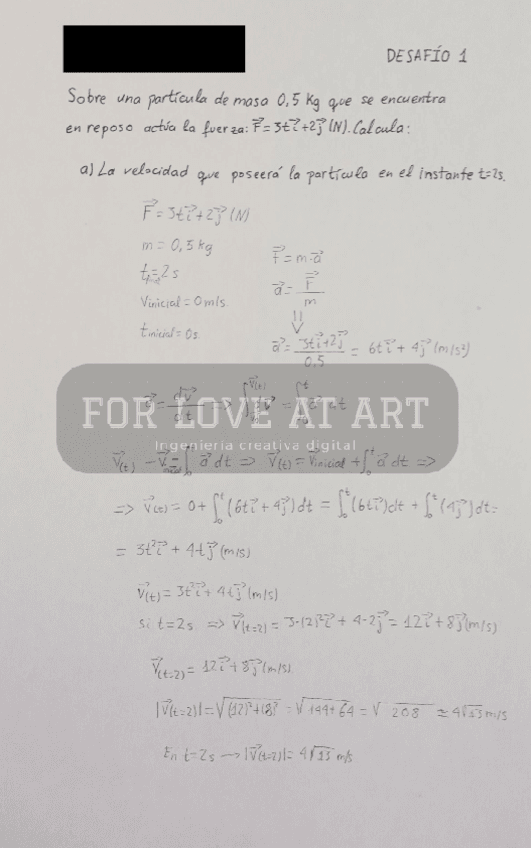 DESAFÍO 1
Sobre una partícula de masa 0,5 Kg que se encuentra
en reposo actúa la fuerza: F⃗=3ti⃗+2j⃗ (N). Calcula:
a) La velocidad que poseerá la partícula en el instante t=2s.
F⃗ = 3ti⃗+2j⃗ (N)
m = 0,5 kg
F⃗ = m·a⃗
t=2s
a⃗ = F⃗/m
Vinicial = 0 m/s.
⇓
tinicial = 0s
a⃗ = (3ti⃗+2j⃗)/0,5 = 6ti⃗ + 4j⃗ (m/s²)
FOR LOVE AT ART
Ingeniería creativa digital
V⃗(t) - ∫ a⃗ dt => V⃗(t) = V⃗inicial + ∫₀ᵗ a⃗ dt =>
=> V⃗(t) = 0+ ∫₀ᵗ (6ti⃗+4j⃗)dt = ∫₀ᵗ (6ti⃗)dt + ∫₀ᵗ (4j⃗)dt=
= 3t²i⃗ + 4tj⃗ (m/s)
V⃗(t) = 3t²i⃗ + 4tj⃗ (m/s)
si t=2s => V⃗(t=2) = 3·(2)²i⃗ + 4·2j⃗ = 12i⃗ + 8j⃗(m/s)
V⃗(t=2) = 12i⃗+8j⃗(m/s)
|V⃗(t=2)| = √(12)²+(8)² = √144+64 = √208 ≃ 4√13 m/s
En t=2s → |V⃗(t=2)| = 4√13 m/s